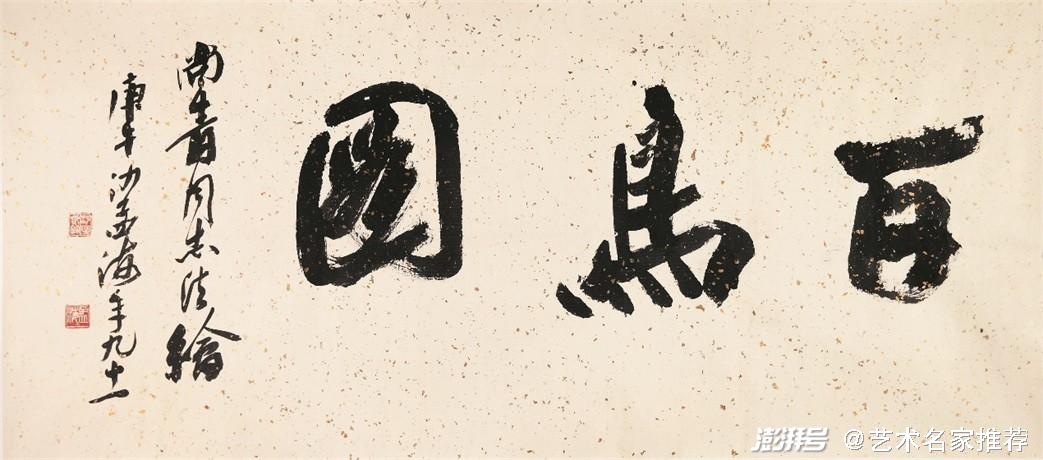 百馬圖
尚青同志法繪
庚午沙孟海年九十一
澎湃号 @艺术名家推荐